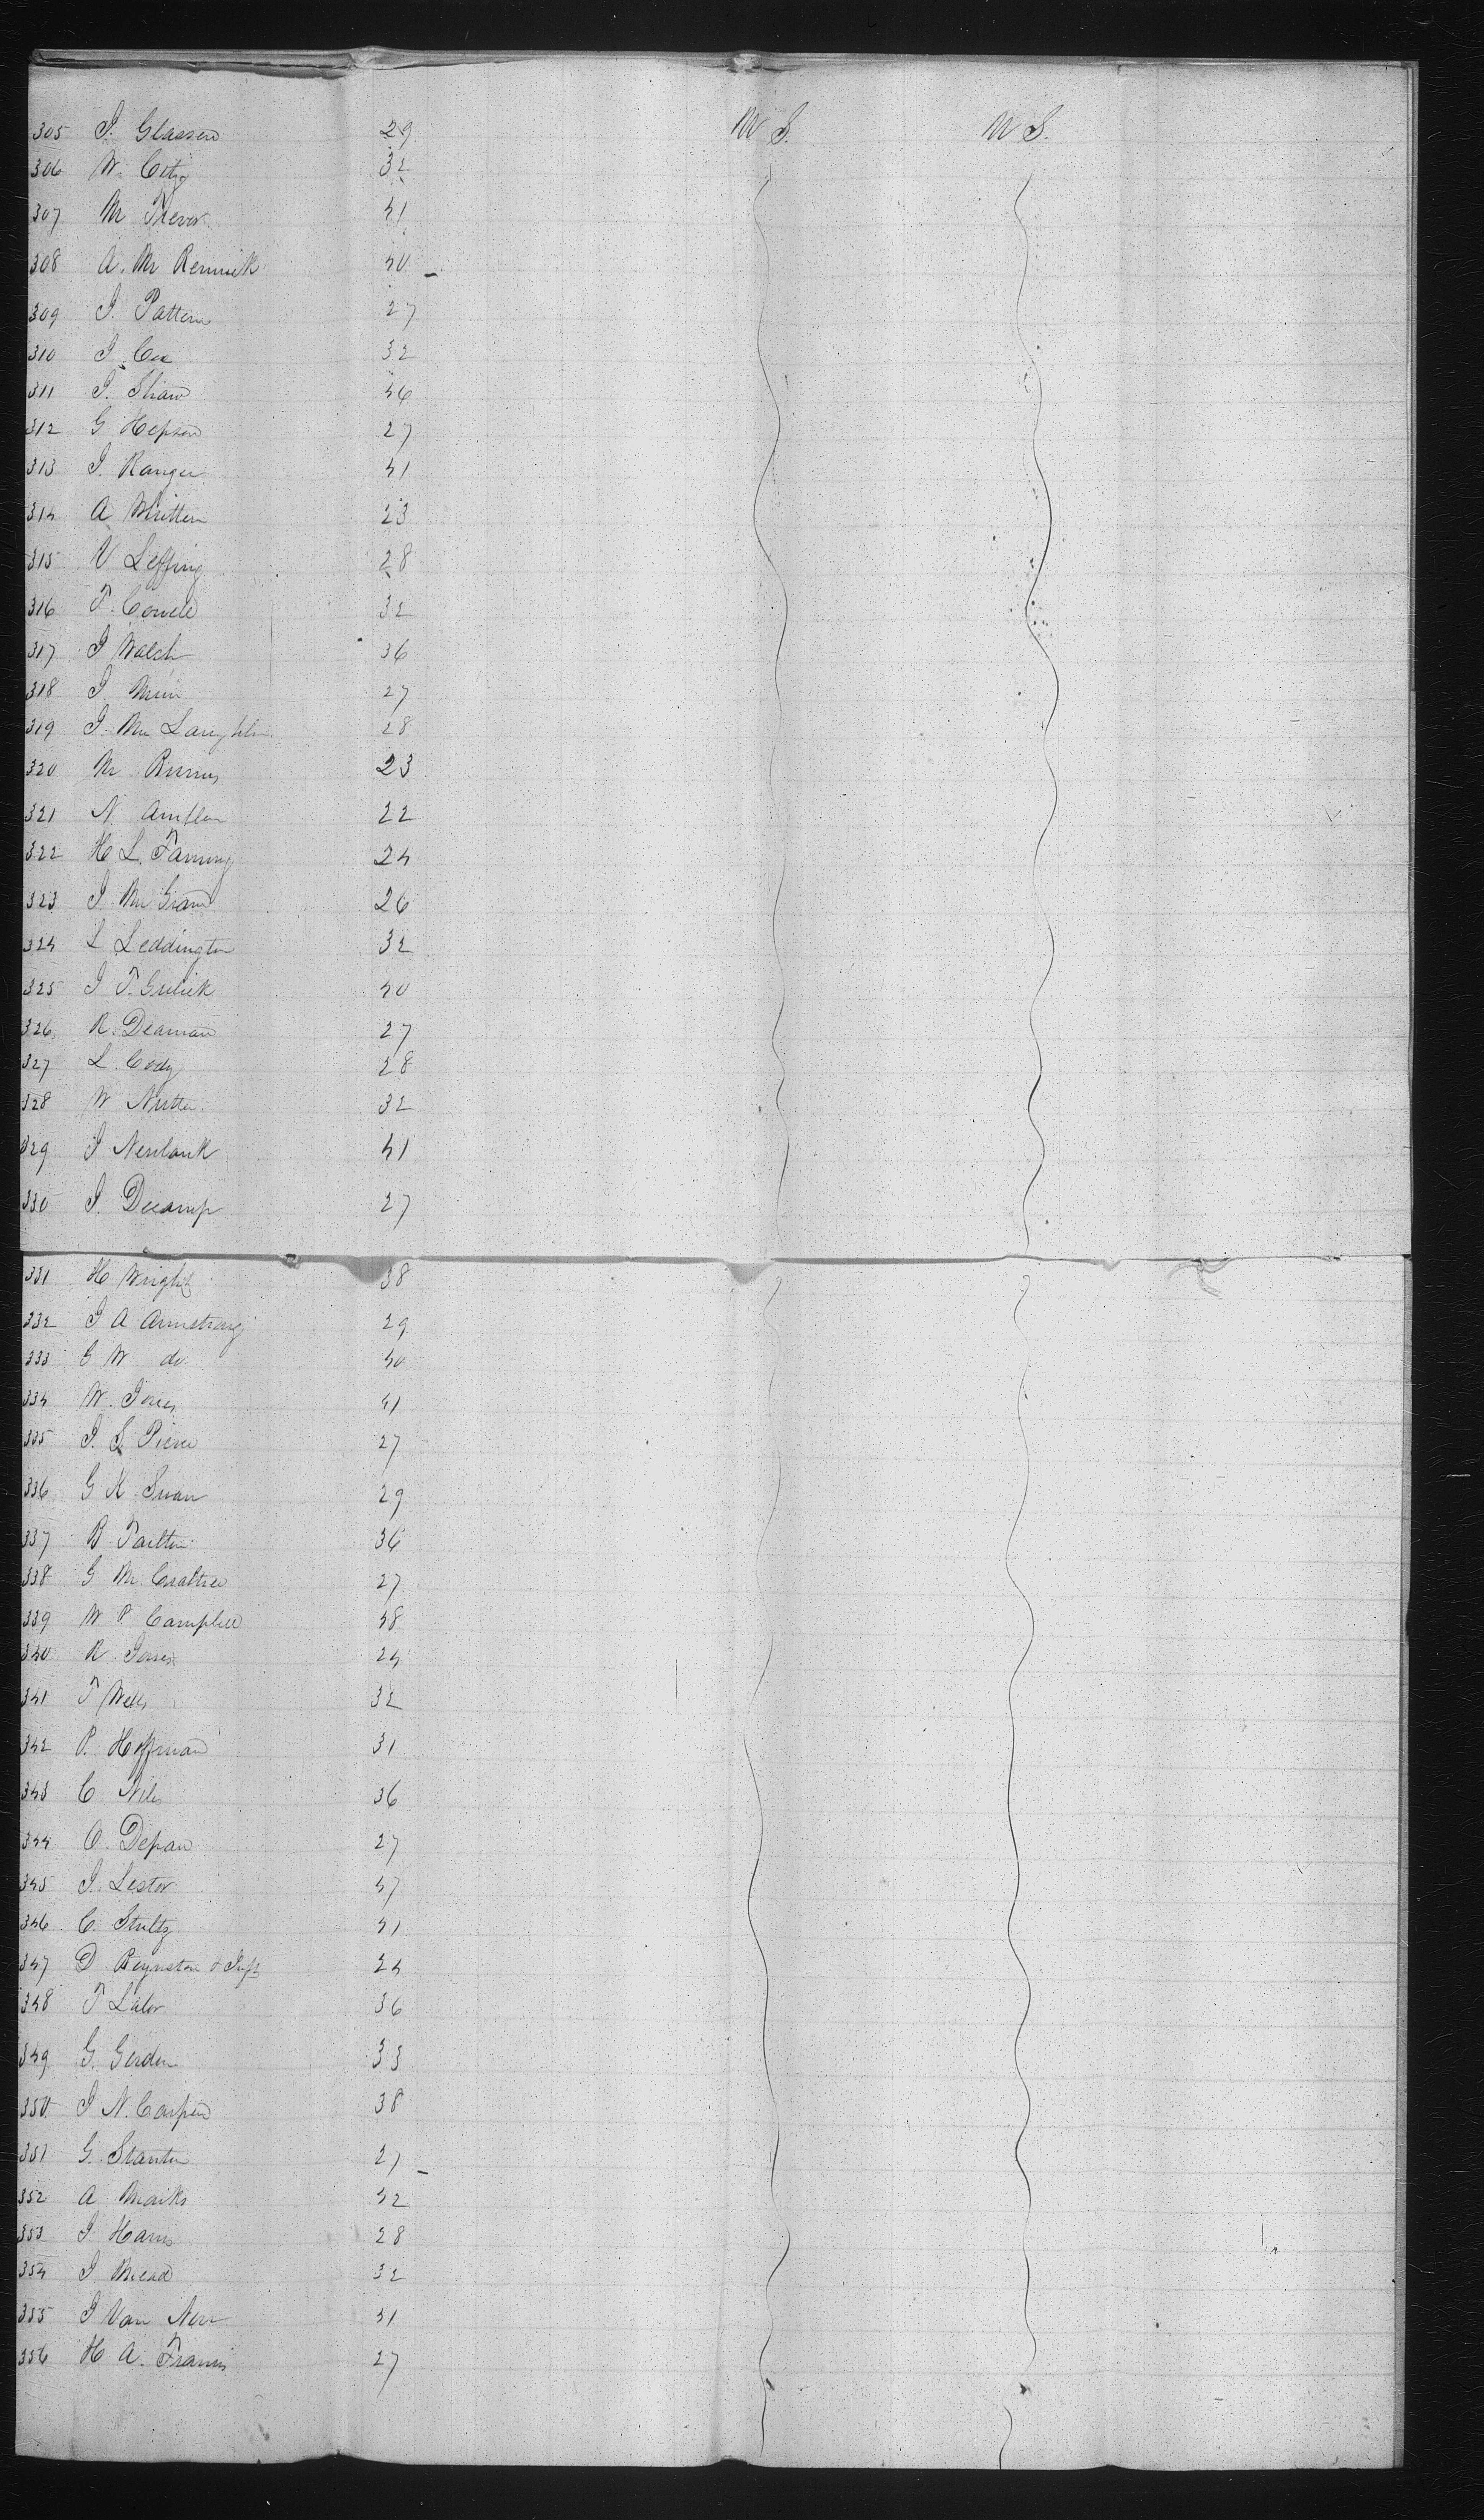 305 J. Glassen 29 U S. U S.
306 W. City 32
307 M Trevor 41
308 A. Mc Remick 40
309 J. Pattern 27
310 J. Cox 32
311 J. Shaw 46
312 G Hepson 27
313 J. Ranger 41
314 A Whitten 23
315 V Leffing 28
316 T. Cowell 32
317 J Walsh 36
318 J. 27
319 J. Mc Laughlin 28
320 M 23
321 N. 22
322 H L. Fanning 24
323 J. Mc 26
324 L Leddington 32
325 J T. Gulick 40
326 R. Deaman 27
327 L. Cody 28
328 W Nutter 32
329 J Newbank 41
330 J. Decamp 27
331 H Wright 38
332 J A Armstrong 29
333 G W do 40
334 W. Jones 41
335 J. S. Pierce 27
336 G K. Swan 29
337 B Tarlton 36
338 G Mc. 27
339 W P Campbell 48
340 R. Jones 24
341 T Wells 32
342 P. Hoffman 31
343 C Niles 36
344 O. Depau 27
345 J. Lester 47
346 C. Stultz 41
347 D Reynston & Inft 24
348 T Lalor 36
349 G. Gerdon 33
350 J N. Carpen 38
351 G. Stanton 27
352 A Marks 42
353 J Harris 28
354 J Mead 32
355 J Van Ness 41
356 H A. Francis 27